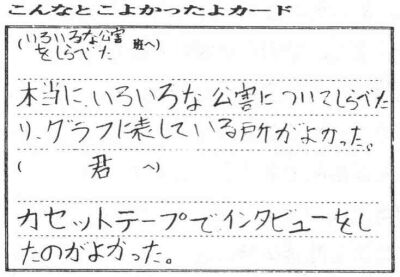 こんなとこよかったよカード
(いろいろな公害
をしらべた 班へ)
本当に、いろいろな公害についてしらべた
り、グラフに表している所がよかった。
( 君へ)
カセットテープでインタビューをし
たのがよかった。